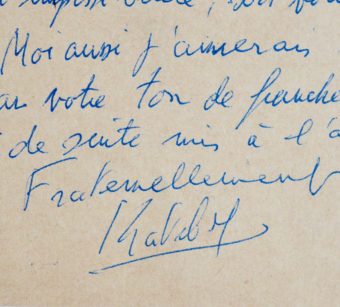 Moi aussi j'aimerais
votre ton de franche
de suite mis à l'a
Fraternellement